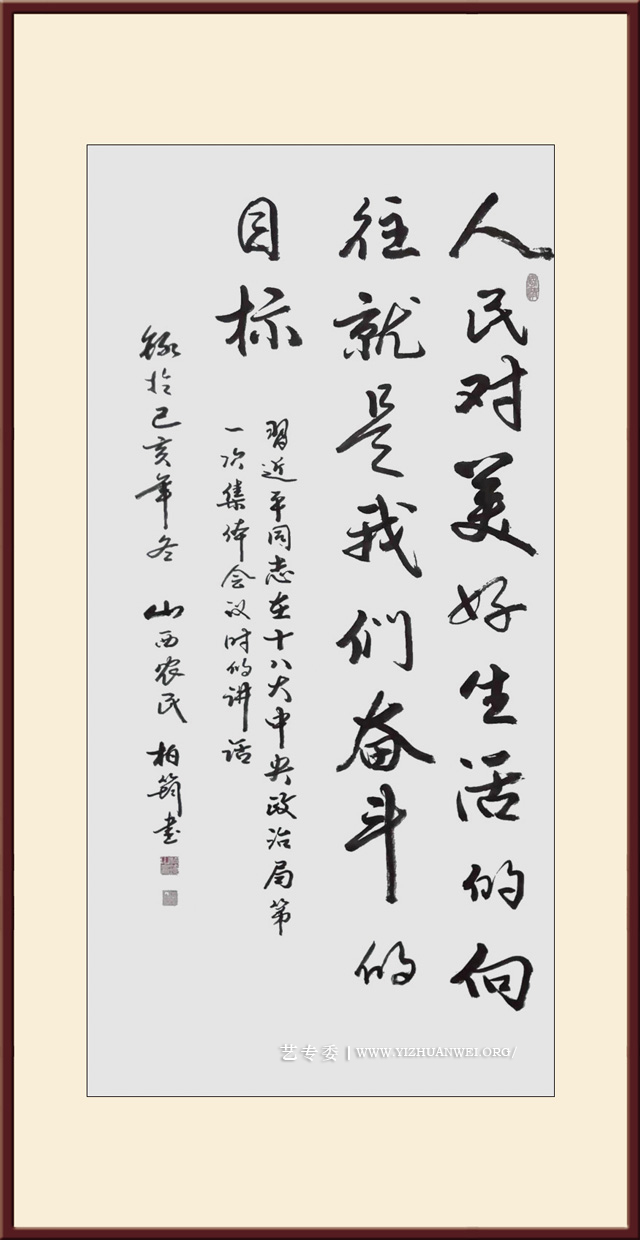 人民对美好生活的向
往就是我们奋斗的
目标
習近平同志在十八大中央政治局第
一次集体会议时的讲话
录于己亥年冬 山西农民 柏筠书
艺专委 | WWW.YIZHUANWEI.ORG/